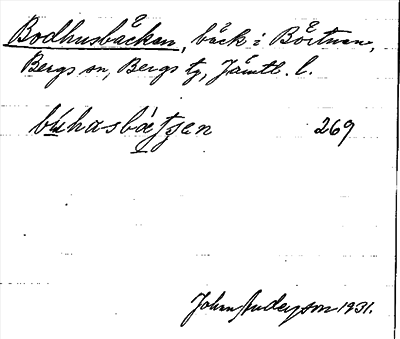 Bodhusbäcken, bäck i Börtnan,
Bergs sn, Bergs tg, Jämtl. l.
búhasbàtʒen 269
John Anderson 1931.